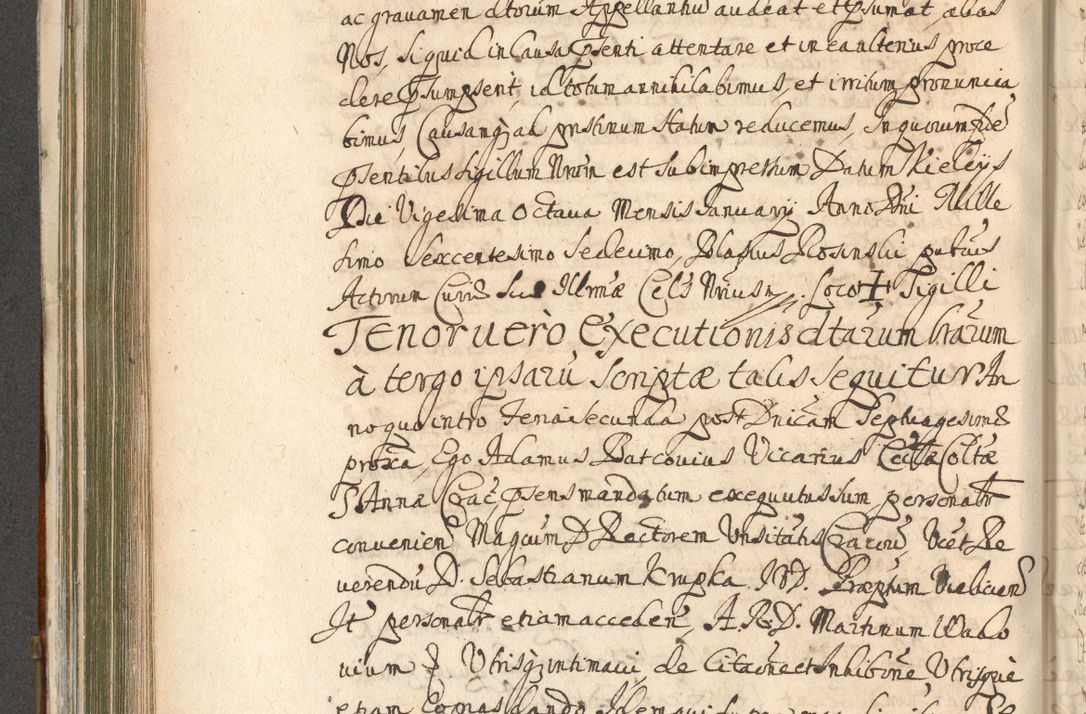 ac gravamen dtorum Appellantiu audeat et psumat, alias
Nos, siquid in Causa psenti attentare et in ea ulterius proce
dere psumpserit, id totum annihilabimus, et irritum pronuncia
bimus Causamq ad pristinum statum reducemus, In quorum fidē
psentibus sigillum Nrum est subimpressum Datum Kielcys
Die Vigesima Octava Mensis January Anno Dni Mille
simo sexcentesimo sedecimo, Blasius Rosinski
Actorum Curiæ Suæ Illmæ Cels Nrius Loco + Sigilli
Tenor uero Executionis dtarum lrarum
à tergo ipsarū scriptæ talis sequitur An
no quo intro feria secunda post Dnicam Septuagesimæ
proxa, Ego Adamus Batcovius Vicarius Ecclæ Coltæ
S Annæ Crac, psens mandatum exequutus sum personalr
convenien Magcum D Rectorem Unsitatis Cracovi, Vcet Re
verendū D. Sebastianum Krupka IVD. Præptum Vielicien
Jt personalr etiam acceden, A.R.D. Martinum Wado
vium Utrisq intimavi de Citaōne et Inhibōne Utrisque
etiam Copias dando Idem qui supra manu